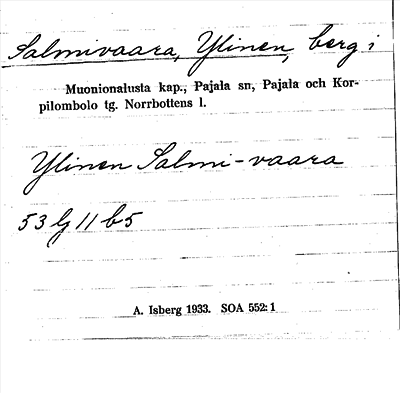 Salmivaara, Ylinen, berg i
Muonionalusta kap., Pajala sn, Pajala och Kor-
pilombolo tg. Norrbottens l.
Ylinen Salmi-vaara
53 lj 11 b5
A. Isberg 1933. SOA 552:1